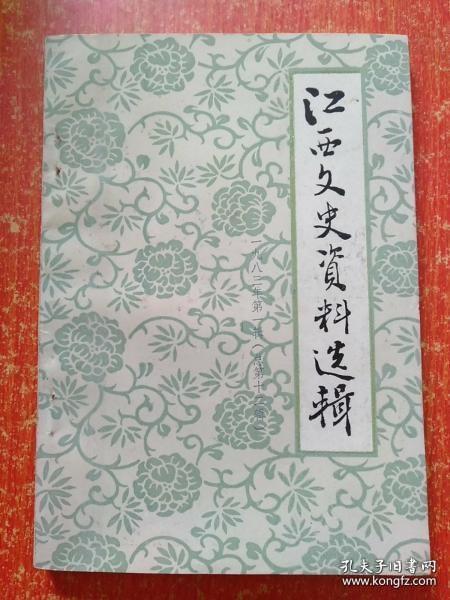 江西文史資料选輯
一九八三年第一辑（总第十二辑）
孔夫子旧书网
www.kongfz.com